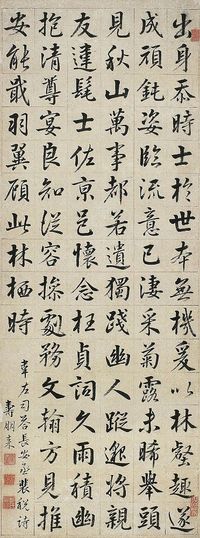 出身忝時士於世本無機爰以林壑趣遂
成頑鈍姿臨流意已凄采菊露未晞舉頭
見秋山萬事都若遺獨踐幽人蹤邈將親
友違髦士佐京邑懷念枉貞詞久雨積幽
抱清尊宴良知從容操劇務文翰方見推
安能戢羽翼顧此林栖時
韋左司答長安丞裴稅詩
壽朋